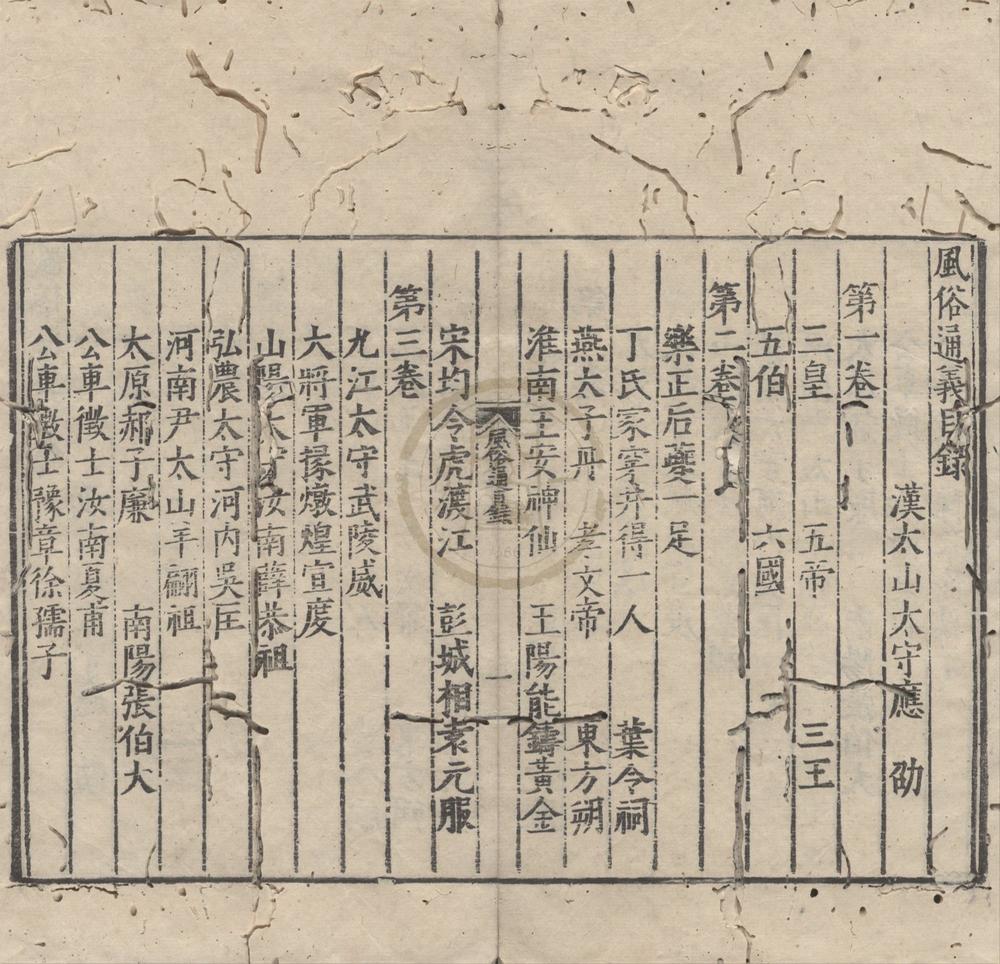 風俗通義目錄
漢太山太守應 劭
第一卷
三皇 五帝 三王
五伯 六國
第二卷
樂正后夔一足
丁氏家穿井得一人 葉令祠
燕太子丹 孝文帝 東方朔
淮南王安神仙 王陽能鑄黃金
宋均令虎渡江 彭城相袁元服
風俗通目錄
一
第三卷
九江太守武陵威
六將軍掾燉煌宣度
山陽太守汝南薛恭祖
弘農太守河内吳匡
河南尹太山羊翩祖
太原郝子廉 南陽張伯大
公車徵士汝南夏甫
公車徵士豫章徐孺子